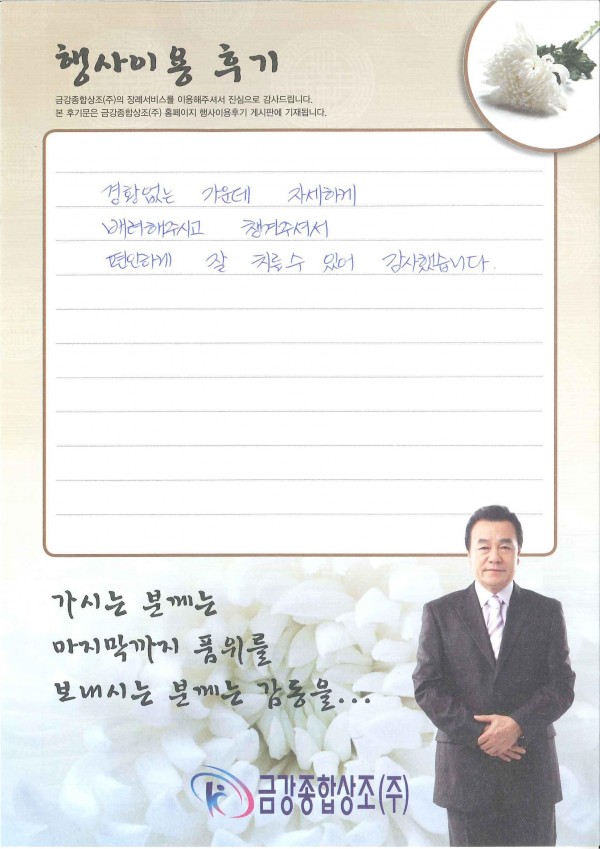 행사이용 후기
금강종합상조(주)의 장례서비스를 이용해주셔서 진심으로 감사드립니다.
본 후기문은 금강종합상조(주) 홈페이지 행사이용후기 게시판에 기재됩니다.
경황없는 가운데 자세하게
배려해주시고 챙겨주셔서
편안하게 잘 치룰수 있어 감사했습니다.
가시는 분께는
마지막까지 품위를
보내시는 분께는 감동을...
금강종합상조(주)